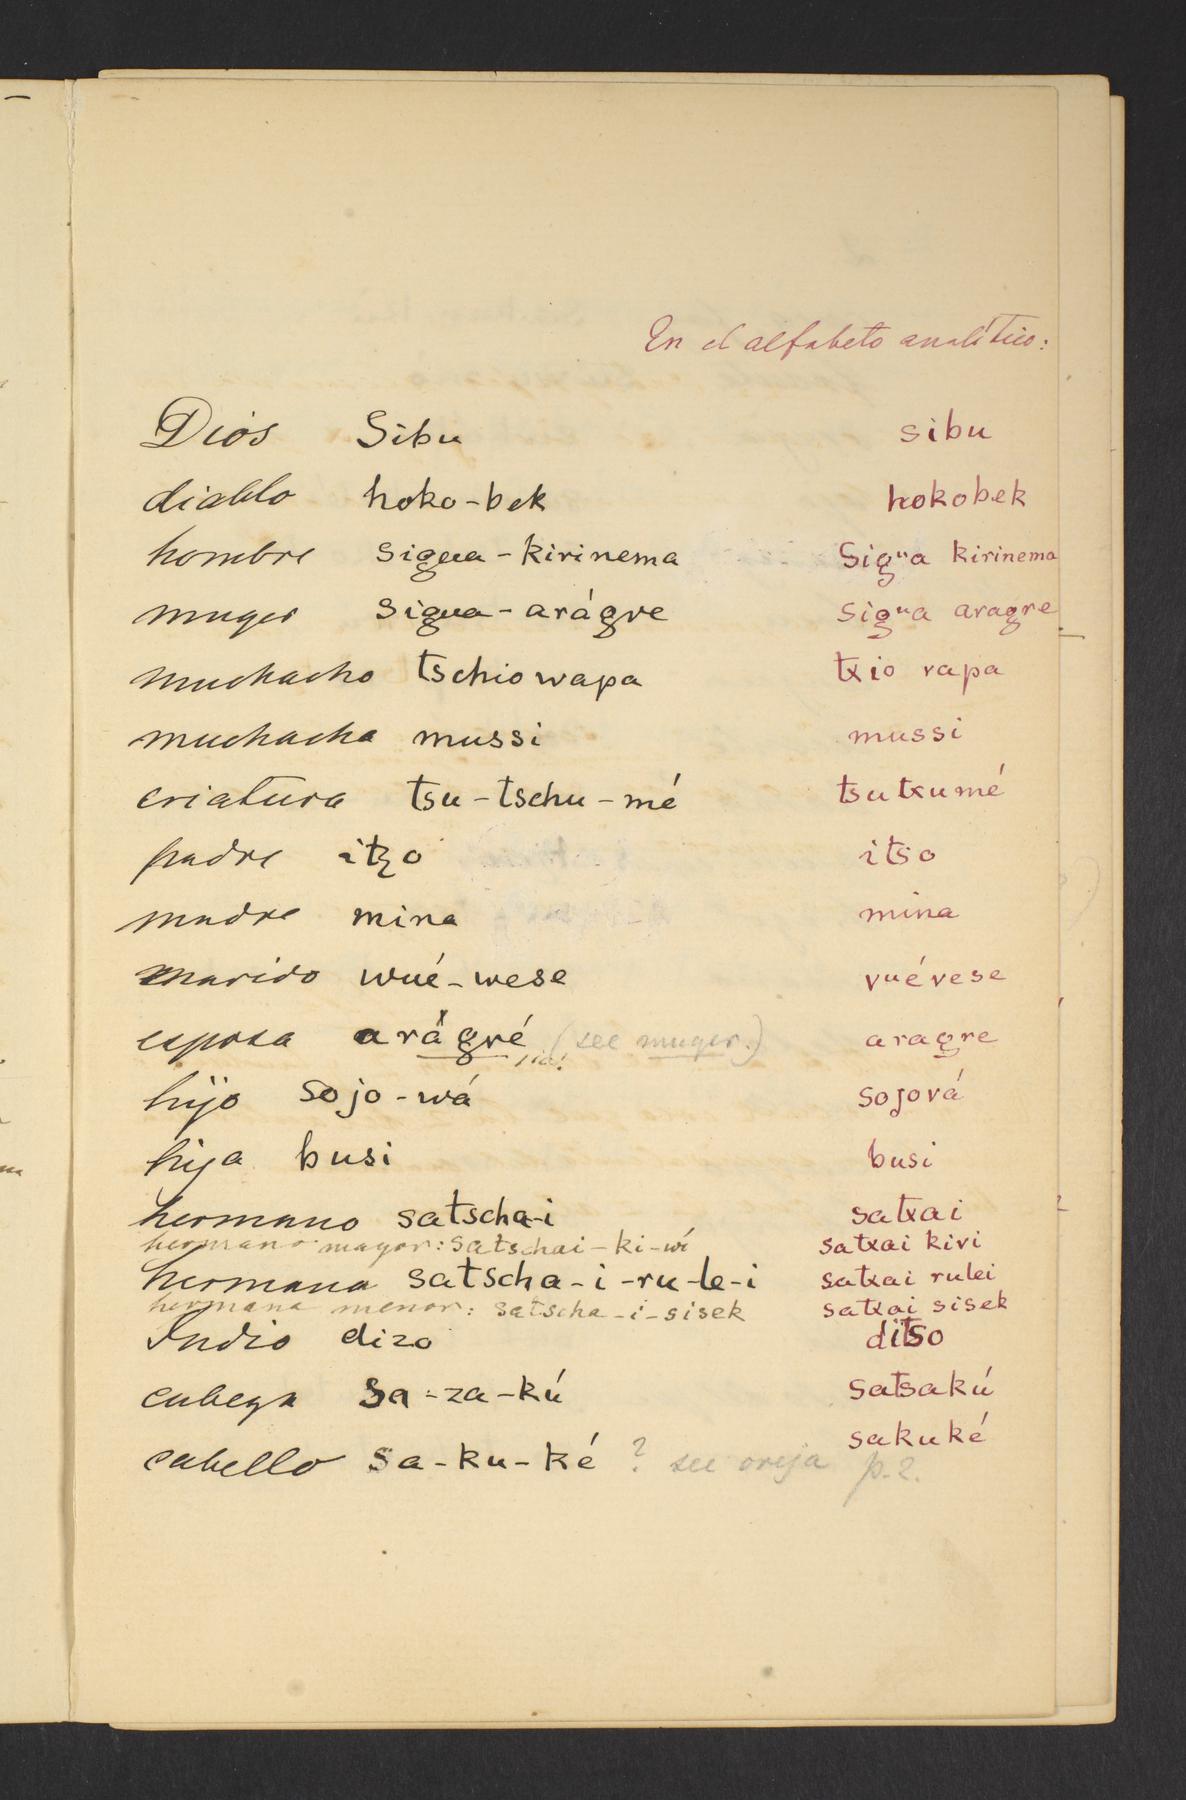 En el alfabeto analítico:
Dios Sibu sibu
diablo hoko-bek hokobek
hombre sigua-kirinema Sigᵘa kirinema
muger sigua-arágre sigᵘa aragre
muchacho tschiowapa txio vapa
muchacha mussi mussi
criatura tsu-tschu-mé tsutxumé
padre itzo itso
madre mina mina
marido wué-wese vᵘévese
esposa arágré (see muger.) aragre
hijo sojo-wá sojová
hija busi busi
hermano satscha-i satxai
hermano mayor: satschai-ki-wi satxai kivi
hermana satscha-i-ru-le-i satxai rulei
hermana menor: satscha-i-sisek satxai sisek
Indio dizo ditso
cabeza sa-za-kú satsakú
cabello sa-ku-ké ? see oreja p.2. sakuké